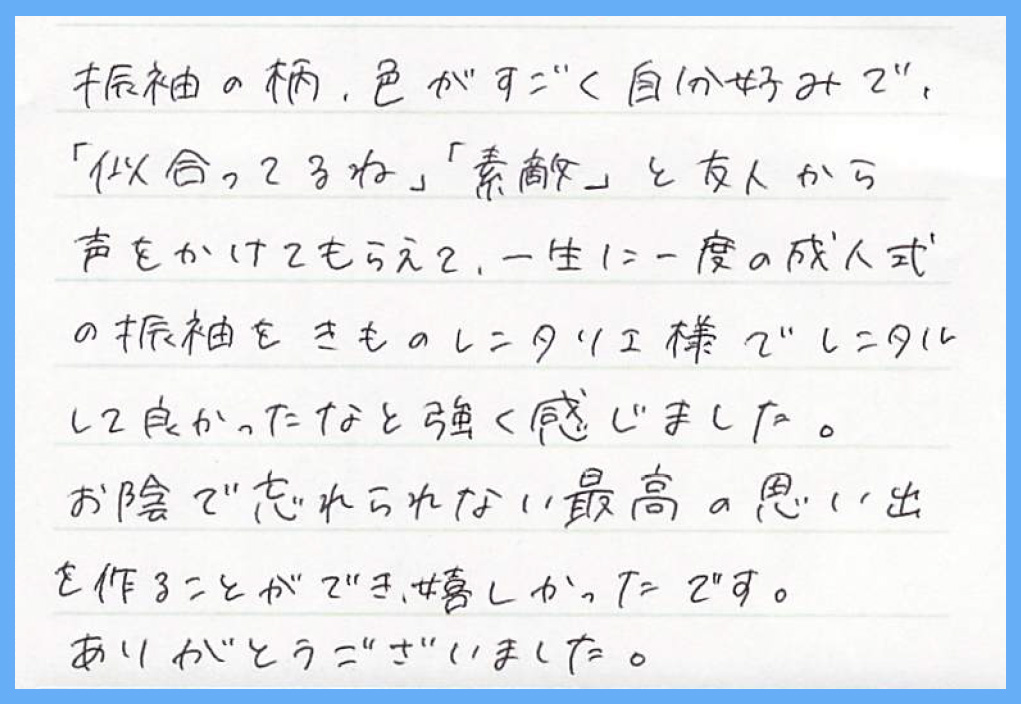 振袖の柄、色がすごく自分好みで、
「似合ってるね」「素敵」と友人から
声をかけてもらえて、一生に一度の成人式
の振袖をきものレンタリエ様でレンタル
して良かったなと強く感じました。
お陰で忘れられない最高の思い出
を作ることができ、嬉しかったです。
ありがとうございました。